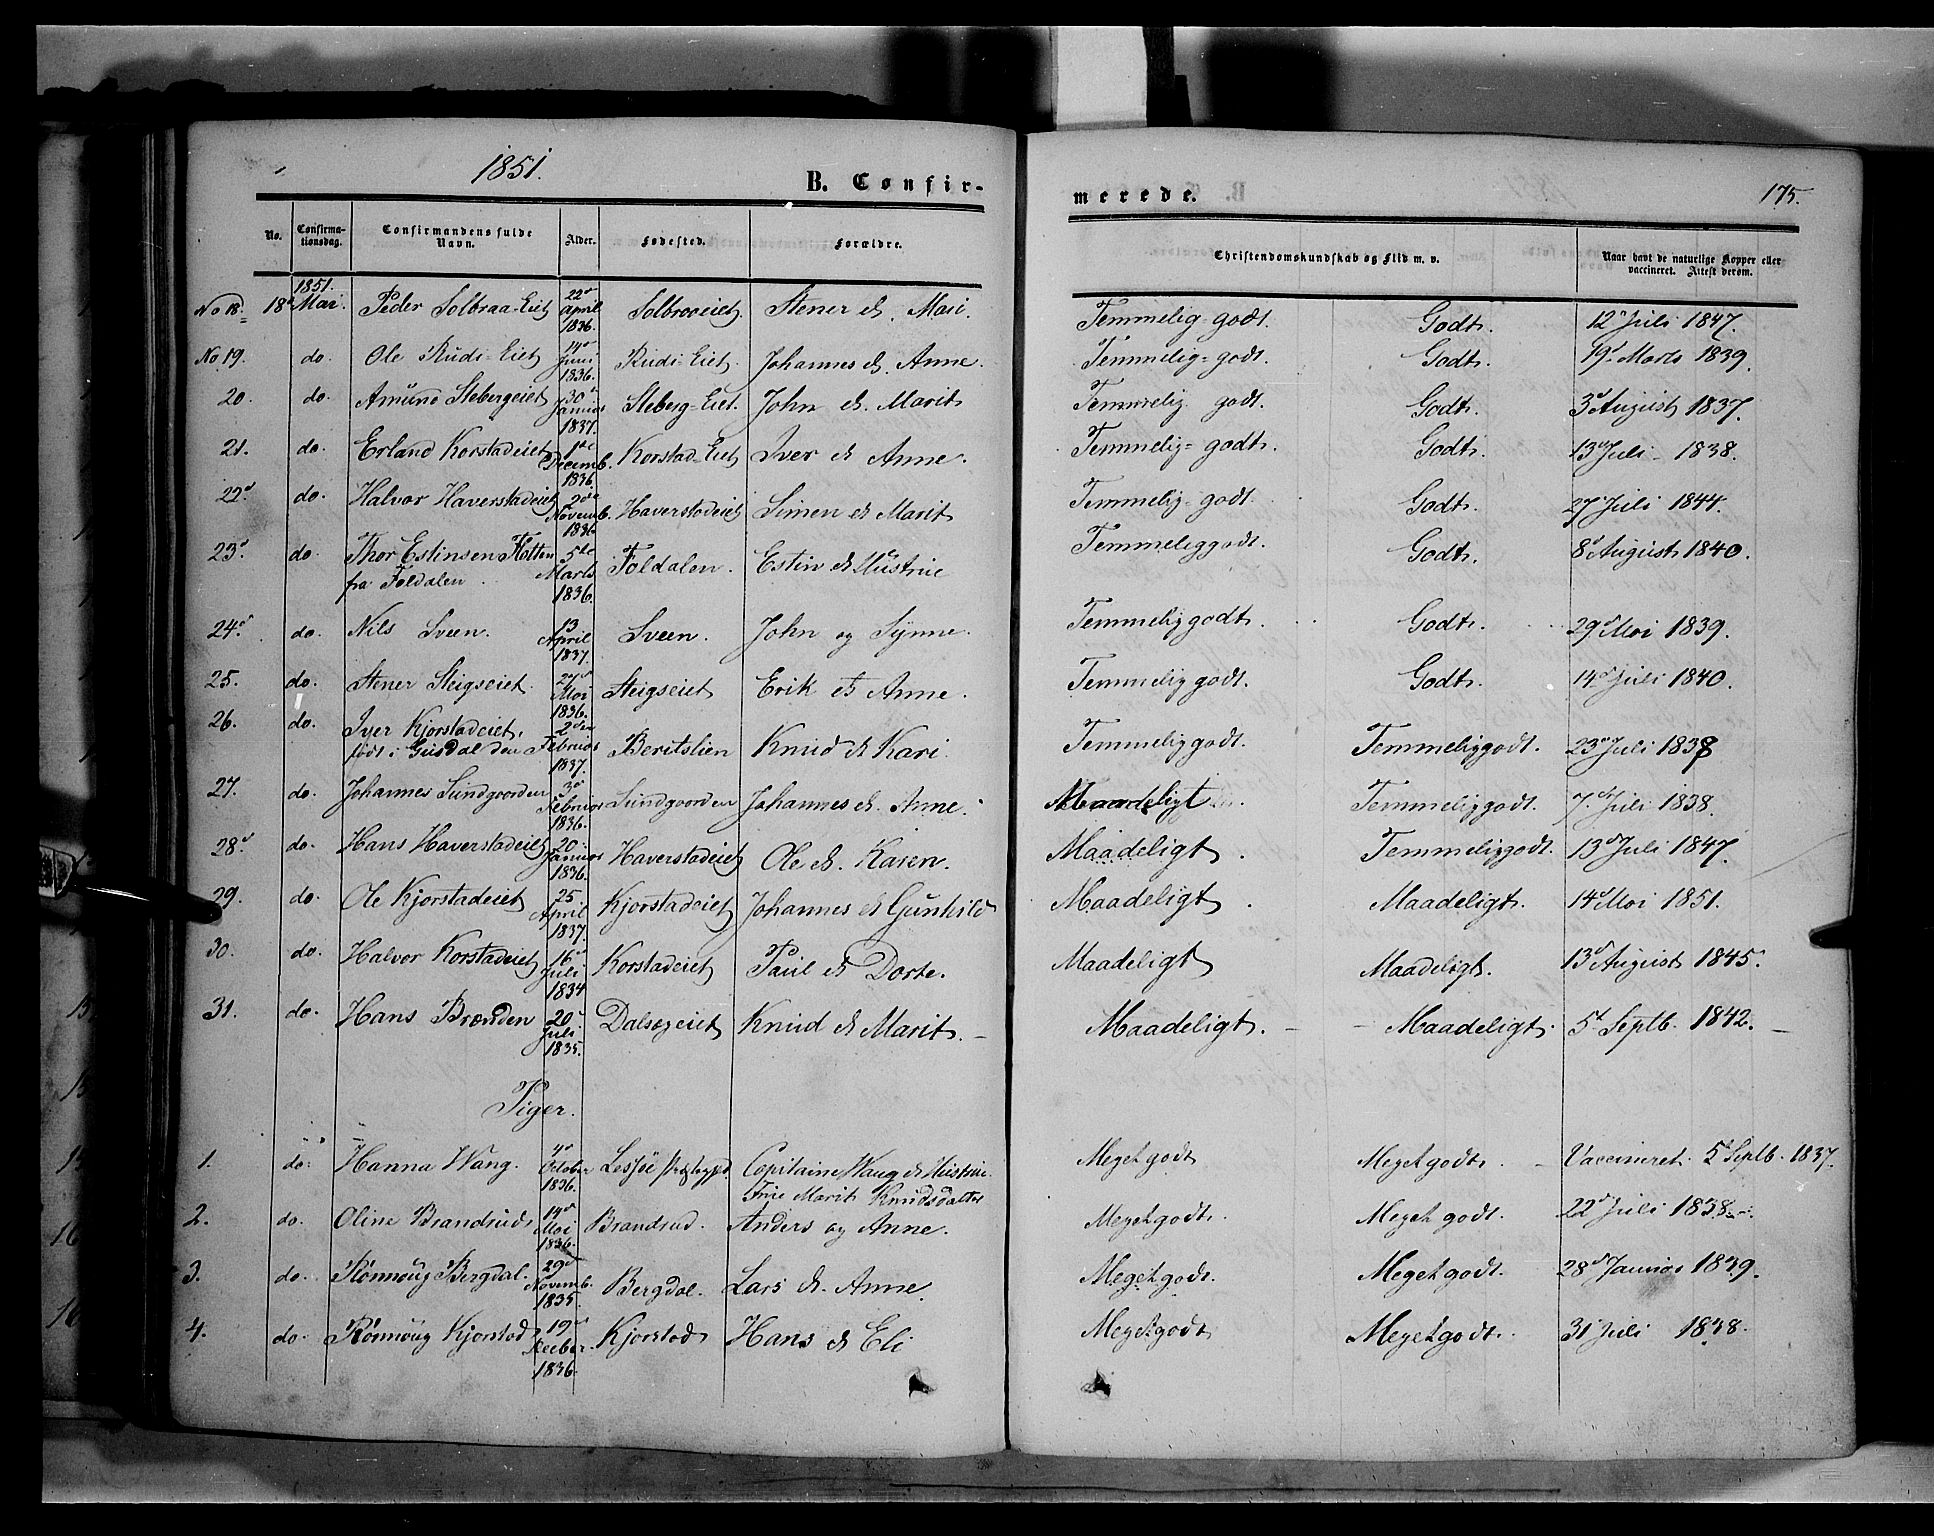 1851.
B. Confir-
merede.
175.
No. Confirma-tionsdag. Confirmandens fulde Navn. Alder. Fødested. Forældre. Christendomskundskab og Flid m. v. Naar havt de naturlige Kopper eller vaccineret. Attest derom.
1851.
No 18. 18d Mai. Peder Solbraa-Eiet 22d April 1836. Solbraaeiet. Stener & Mari. Temmelig godt. Godt. 12te Juli 1847.
No 19. do. Ole Rudi-Eiet 14d Juni 1836. Rudi-Eiet. Johannes & Anne. Temmelig-godt. Godt. 19d Marts 1839.
20. do. Amund Stebergeiet 30d Januar 1837. Steberg-Eiet. John & Marit Temmelig godt. Godt. 3d August 1837.
21. do. Erland Korstadeiet 1ste Decemb. 1836. Korstad-Eiet Iver & Anne. Temmelig-godt. Godt. 13d Juli 1838.
22d do. Halvor Haverstadeiet 2die Novemb. 1836 Haverstadeiet Simen & Marit Temmelig-godt. Godt. 27 Juli 1844.
23d do. Thor Estinsen Flotten fra Foldalen 5te Marts 1836. Foldalen. Estin & Hustrue Temmeliggodt. Godt. 8d August 1840.
24d do. Nils Sveen. 13 April 1837. Sveen. John og Synne. Temmeliggodt. Godt. 29d Mai 1839.
25. do. Stener Steigseiet. 27d Mai 1836. Steigseiet Erik & Anne. Temmeliggodt. Godt. 14d Juli 1840.
26. do. Iver Kjorstadeiet, født i Gusdal den 2den Februar 1837. Beritslien Knud & Kari. Temmeliggodt. Temmeliggodt. 23d Juli 1838
27. do. Johannes Sundgaarden 3d Februar 1836. Sundgaarden Johannes & Anne. Maadeligt. Temmeliggodt. 7d Juli 1838.
28d do. Hans Haverstadeiet 20 Januar 1836. Haverstadeiet Ole & Karen. Maadeligt. Temmeliggodt. 13d Juli 1847.
29. do. Ole Kjorstadeiet 25 April 1837. Kjorstadeiet Johannes & Gunhild Maadeligt. Maadeligt. 14d Mai 1851.
30. do. Halvor Korstadeiet 16d Juli 1834 Korstadeiet Paul & Dorte. Maadeligt Maadeligt. 13d August 1845.
31. do. Hans Brænden 20d Juli 1835. Dalsegeiet Knud & Marit. Maadeligt. Maadeligt. 5d Septb. 1842.
Piger.
1. do. Hanna Wang. 4d October 1836. Lessøe Præstegjd. Capitaine Wang & Hustrue Frue Marit Knudsdatter Megetgodt Megetgodt. Vaccineret. 5d Septb. 1837.
2. do. Oline Brandrud 14d Mai 1836. Brandrud. Anders og Anne. Megetgodt. Meget godt. 22d Juli 1838.
3. do. Rønnoug Bergdal. 29d Novemb. 1835. Bergdal. Lars & Anne. Megetgodt. Megetgodt. 28d Januar 1839.
4. do. Rønnoug Kjorstad 19d 1836. Kjorstad Hans & Eli Megetgodt Megetgodt. 31 Juli 1838.